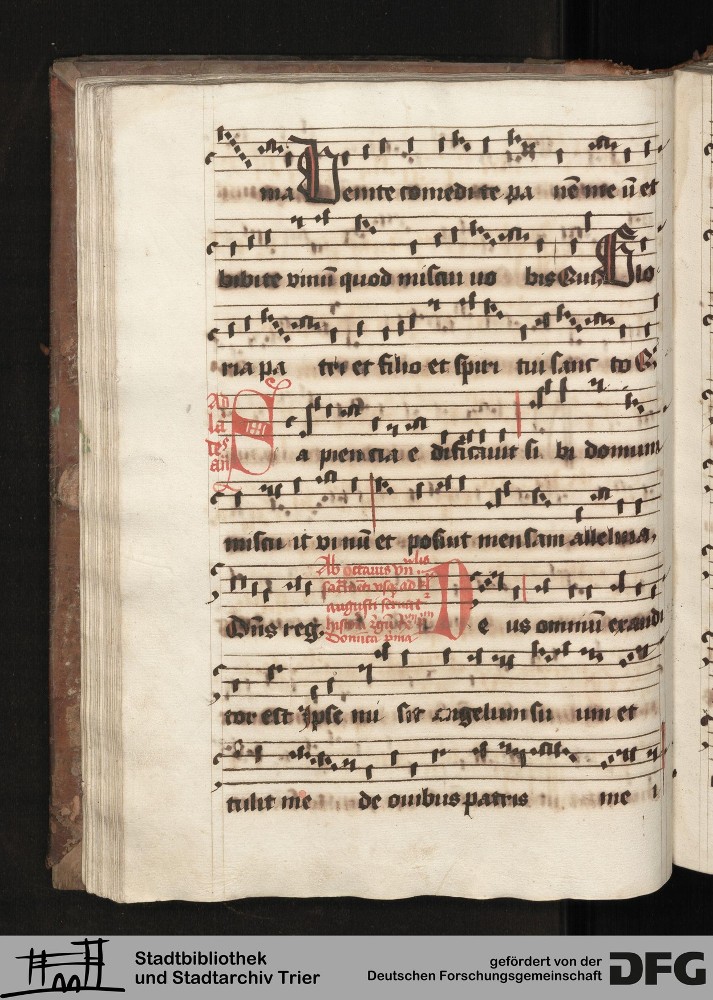 ma Uenite comedite pa nē me ū et
bibite vinū quod miscui uo bis Qui Glo
ria pa tri et filio et spiri tui sanc to
Ad
la
Sa pien cia e dificauit si bi domum
miscu it vi nū et posuit mensam alleluia.
Dn̄s reg.
augusti
De us omniū exaudi
tor est Ipse mi sit angelum su um et
tulit me de ouibus patris me i
Stadtbibliothek
und Stadtarchiv Trier
gefördert von der
Deutschen Forschungsgemeinschaft
DFG